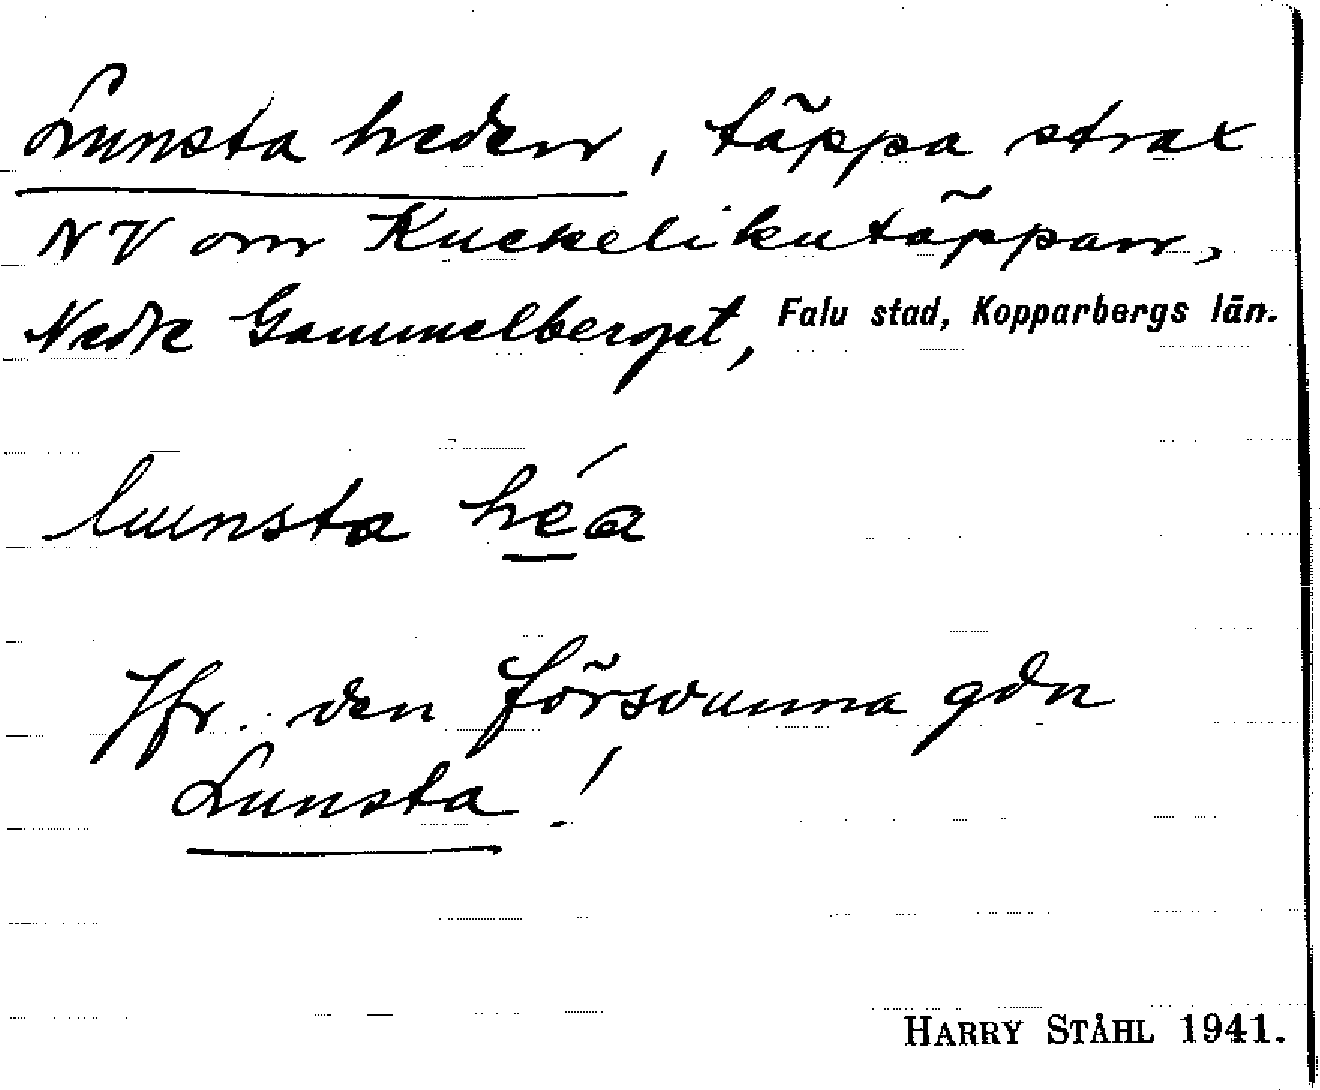 Lunsta heden, täppa strax
NV om Kuckelikutäppan,
Nedre Gammelberget, Falu stad, Kopparbergs län.
lunsta héa
Jfr. den försvunna gdn
Lunsta!
HARRY STÅHL 1941.